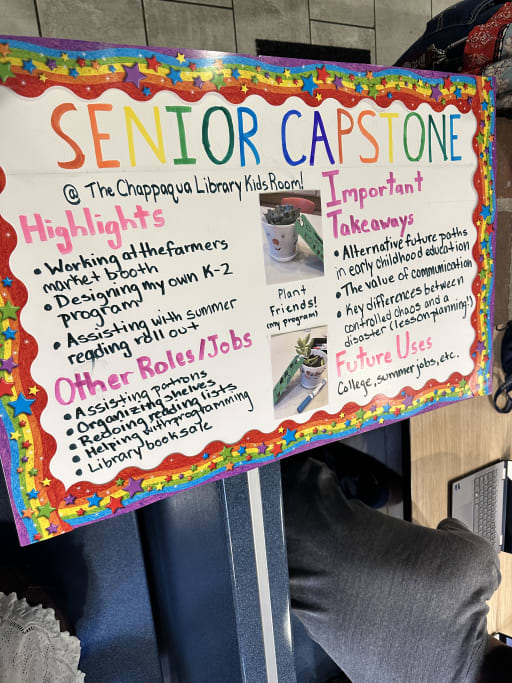 SENIOR CAPSTONE
@ The Chappaqua Library Kids Room!
Highlights
• Working at the farmers
market booth
• Designing my own K-2
program!
• Assisting with summer
reading roll out
Other Roles/Jobs
• Assisting patrons
• Organizing shelves
• Redoing reading lists
• Helping with programming
• Library book sale
Plant
Friends!
(my program)
Important
Takeaways
• Alternative future paths
in early childhood education
• The value of communication
• Key differences between
controlled chaos and a
disaster (lesson planning!)
Future Uses
College, summer jobs, etc.